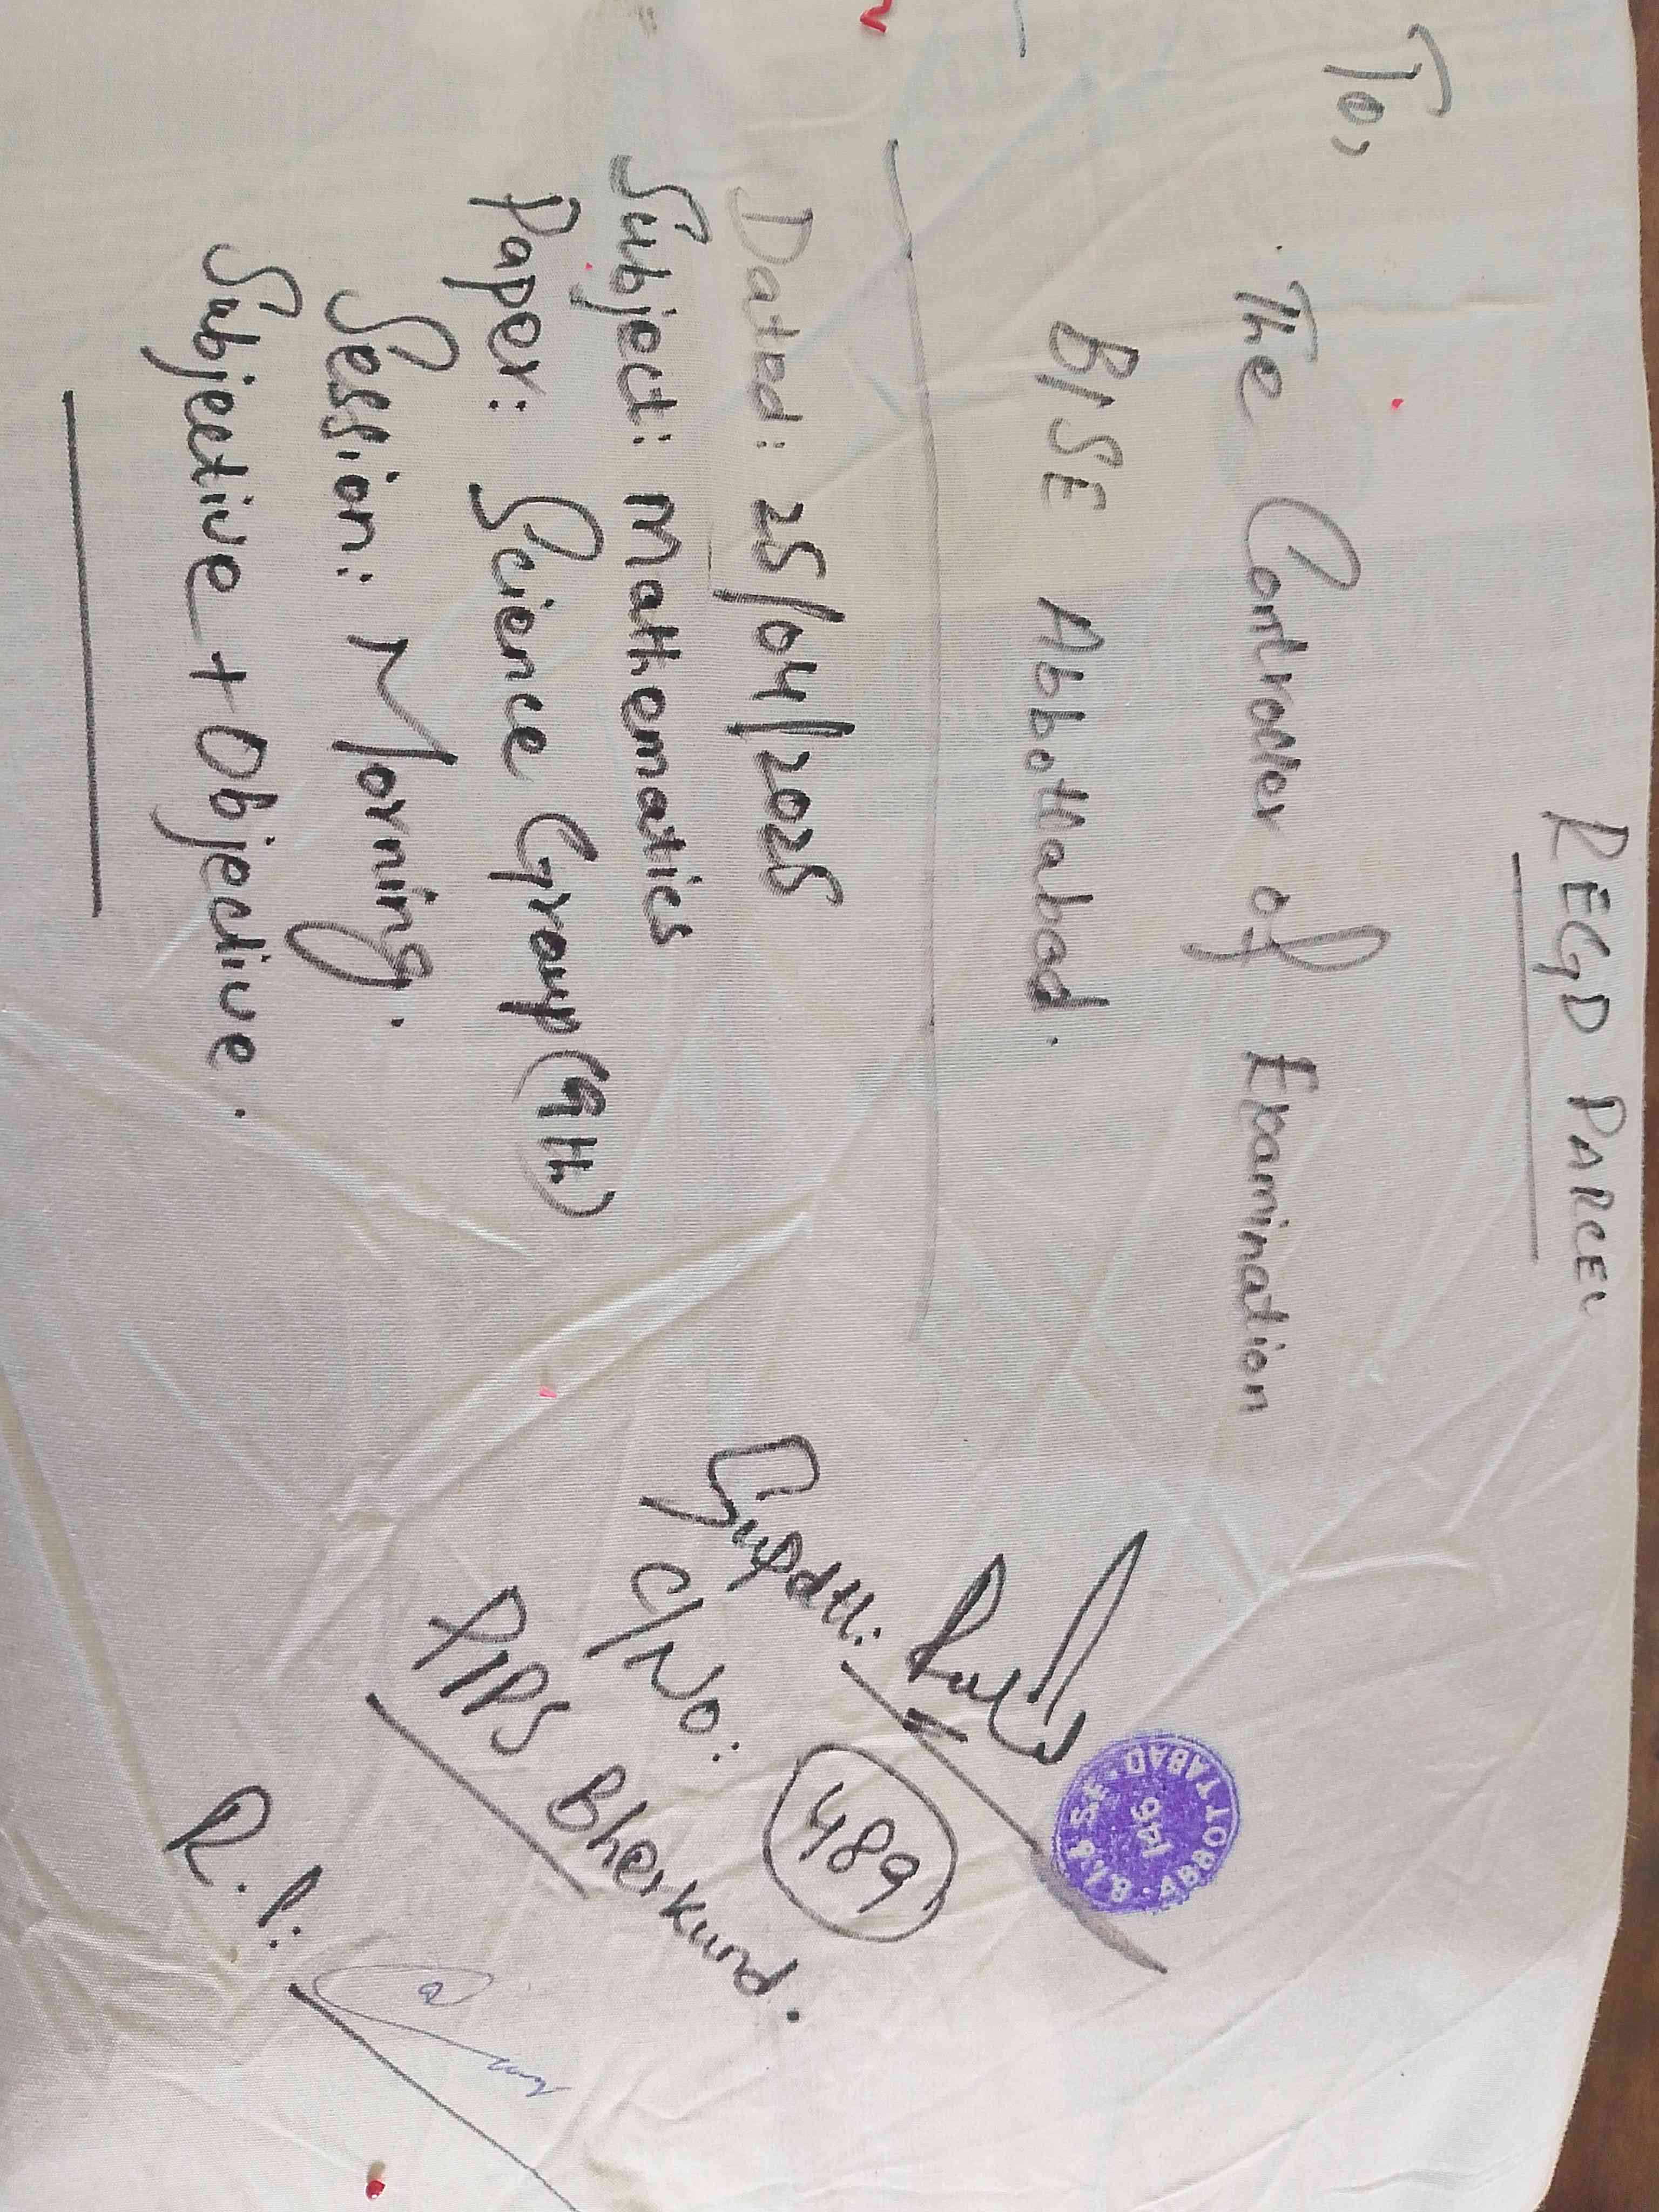 REGD PARCEL
To,
The Controller of Examination
BISE Abbottabad.
Dated: 25/04/2025
Subject: Mathematics
Paper: Science Group (9th)
Session: Morning.
Subjective + Objective.
Supdtt:
C/No: 489
PIPS Bherkund.
R.I:
B.I.& S.E. ABBOTTABAD
146